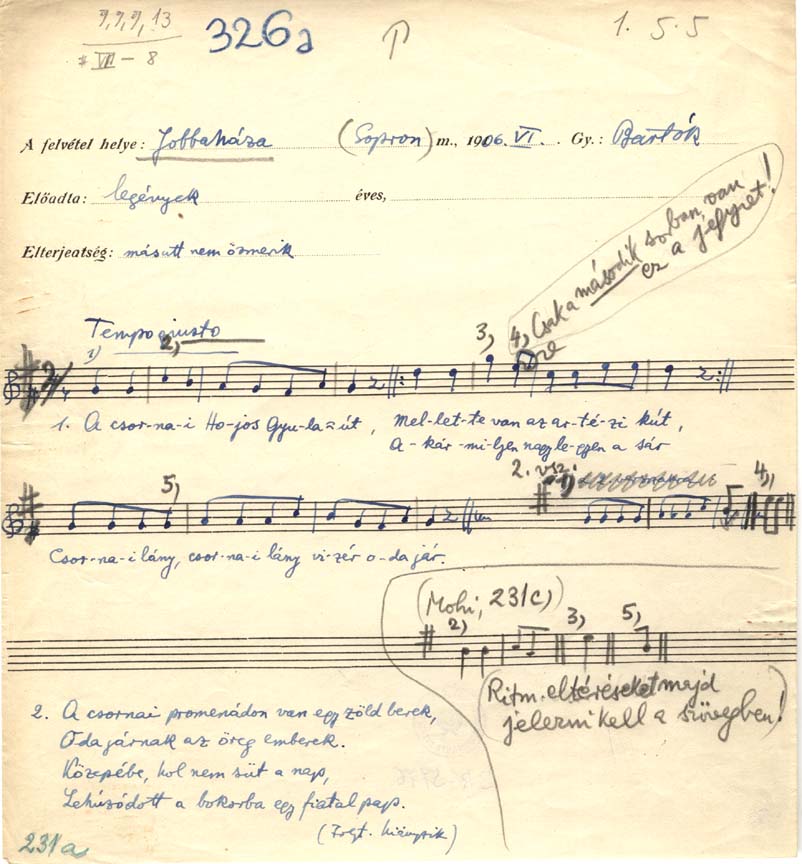 9, 9, 9, 13
VII – 8
326a
1. 5. 5
A felvétel helye: Jobbaháza (Sopron) m., 1906. VI. Gy.: Bartók
Előadta: legények éves,
Elterjeatség: másutt nem ösmerik
4, Csak a második sorban van
ez a jegyzet!
Tempo giusto
1) 2, 3,
2/4
1. A csor-na-i Ho-jos Gyu-la=út, Mel-let-te van az ar-té-zi kút,
A-kár-mi-lyen nagy le-gyen a sár
5) 2. vsz. 4,
Csor-na-i lány, csor-na-i lány vi-zér o-da jár.
(Mohi, 231c)
2) 3) 5)
Ritm. eltéréseket majd
jelezni kell a szövegben!
2. A csornai promenádon van egy zöld berek,
Oda járnak az öreg emberek.
Közepébe, hol nem süt a nap,
Lehúzódott a bokorba egy fiatal pap.
(Folyt. hiányzik)
231a